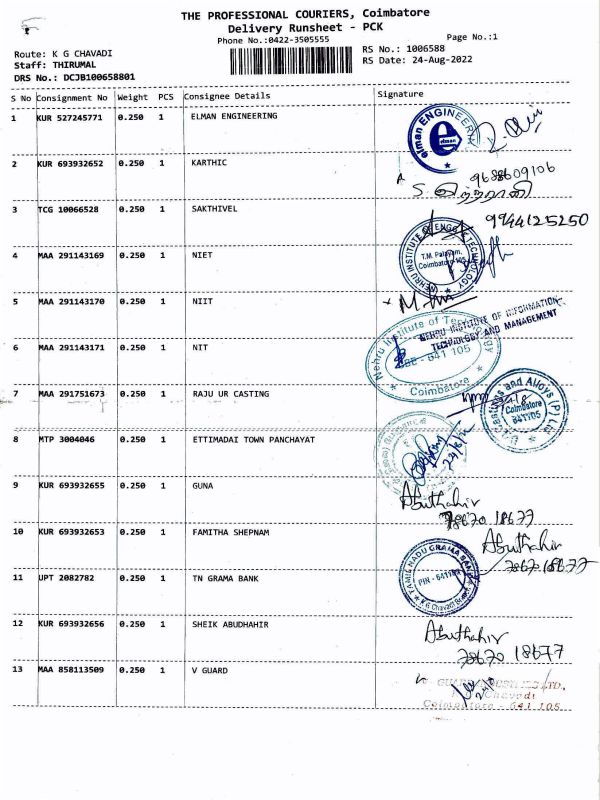 THE PROFESSIONAL COURIERS, Coimbatore
Delivery Runsheet - PCK
Phone No.:0422-3505555
Page No.:1
Route: K G CHAVADI
RS No.: 1006588
Staff: THIRUMAL
RS Date: 24-Aug-2022
DRS No.: DCJB100658801
S No Consignment No Weight PCS Consignee Details Signature
1 KUR 527245771 0.250 1 ELMAN ENGINEERING
elman ENGINEERING
e
elman
2 KUR 693932652 0.250 1 KARTHIC
9688609106
3 TCG 10066528 0.250 1 SAKTHIVEL
9944125250
4 MAA 291143169 0.250 1 NIET
NEHRU INSTITUTE OF ENGG & TECHNOLOGY
T.M. Palayam,
Coimbatore-105
5 MAA 291143170 0.250 1 NIIT
NEHRU INSTITUTE OF INFORMATION
TECHNOLOGY AND MANAGEMENT
6 MAA 291143171 0.250 1 NIT
Nehru Institute of Technology
641 105
Coimbatore
7 MAA 291751673 0.250 1 RAJU UR CASTING
Castings and Alloys (P) Ltd
Coimbatore
641105
8 MTP 3004046 0.250 1 ETTIMADAI TOWN PANCHAYAT
9 KUR 693932655 0.250 1 GUNA
Abuthahir
78670 18677
10 KUR 693932653 0.250 1 FAMITHA SHEPNAM
Abuthahir
7867 18677
11 UPT 2082782 0.250 1 TN GRAMA BANK
TAMIL NADU GRAMA BANK
PIN - 641105
K G Chavadi Branch
12 KUR 693932656 0.250 1 SHEIK ABUDHAHIR
Abuthahir
78670 18677
13 MAA 858113509 0.250 1 V GUARD
Chavadi
Coimbatore - 641 105